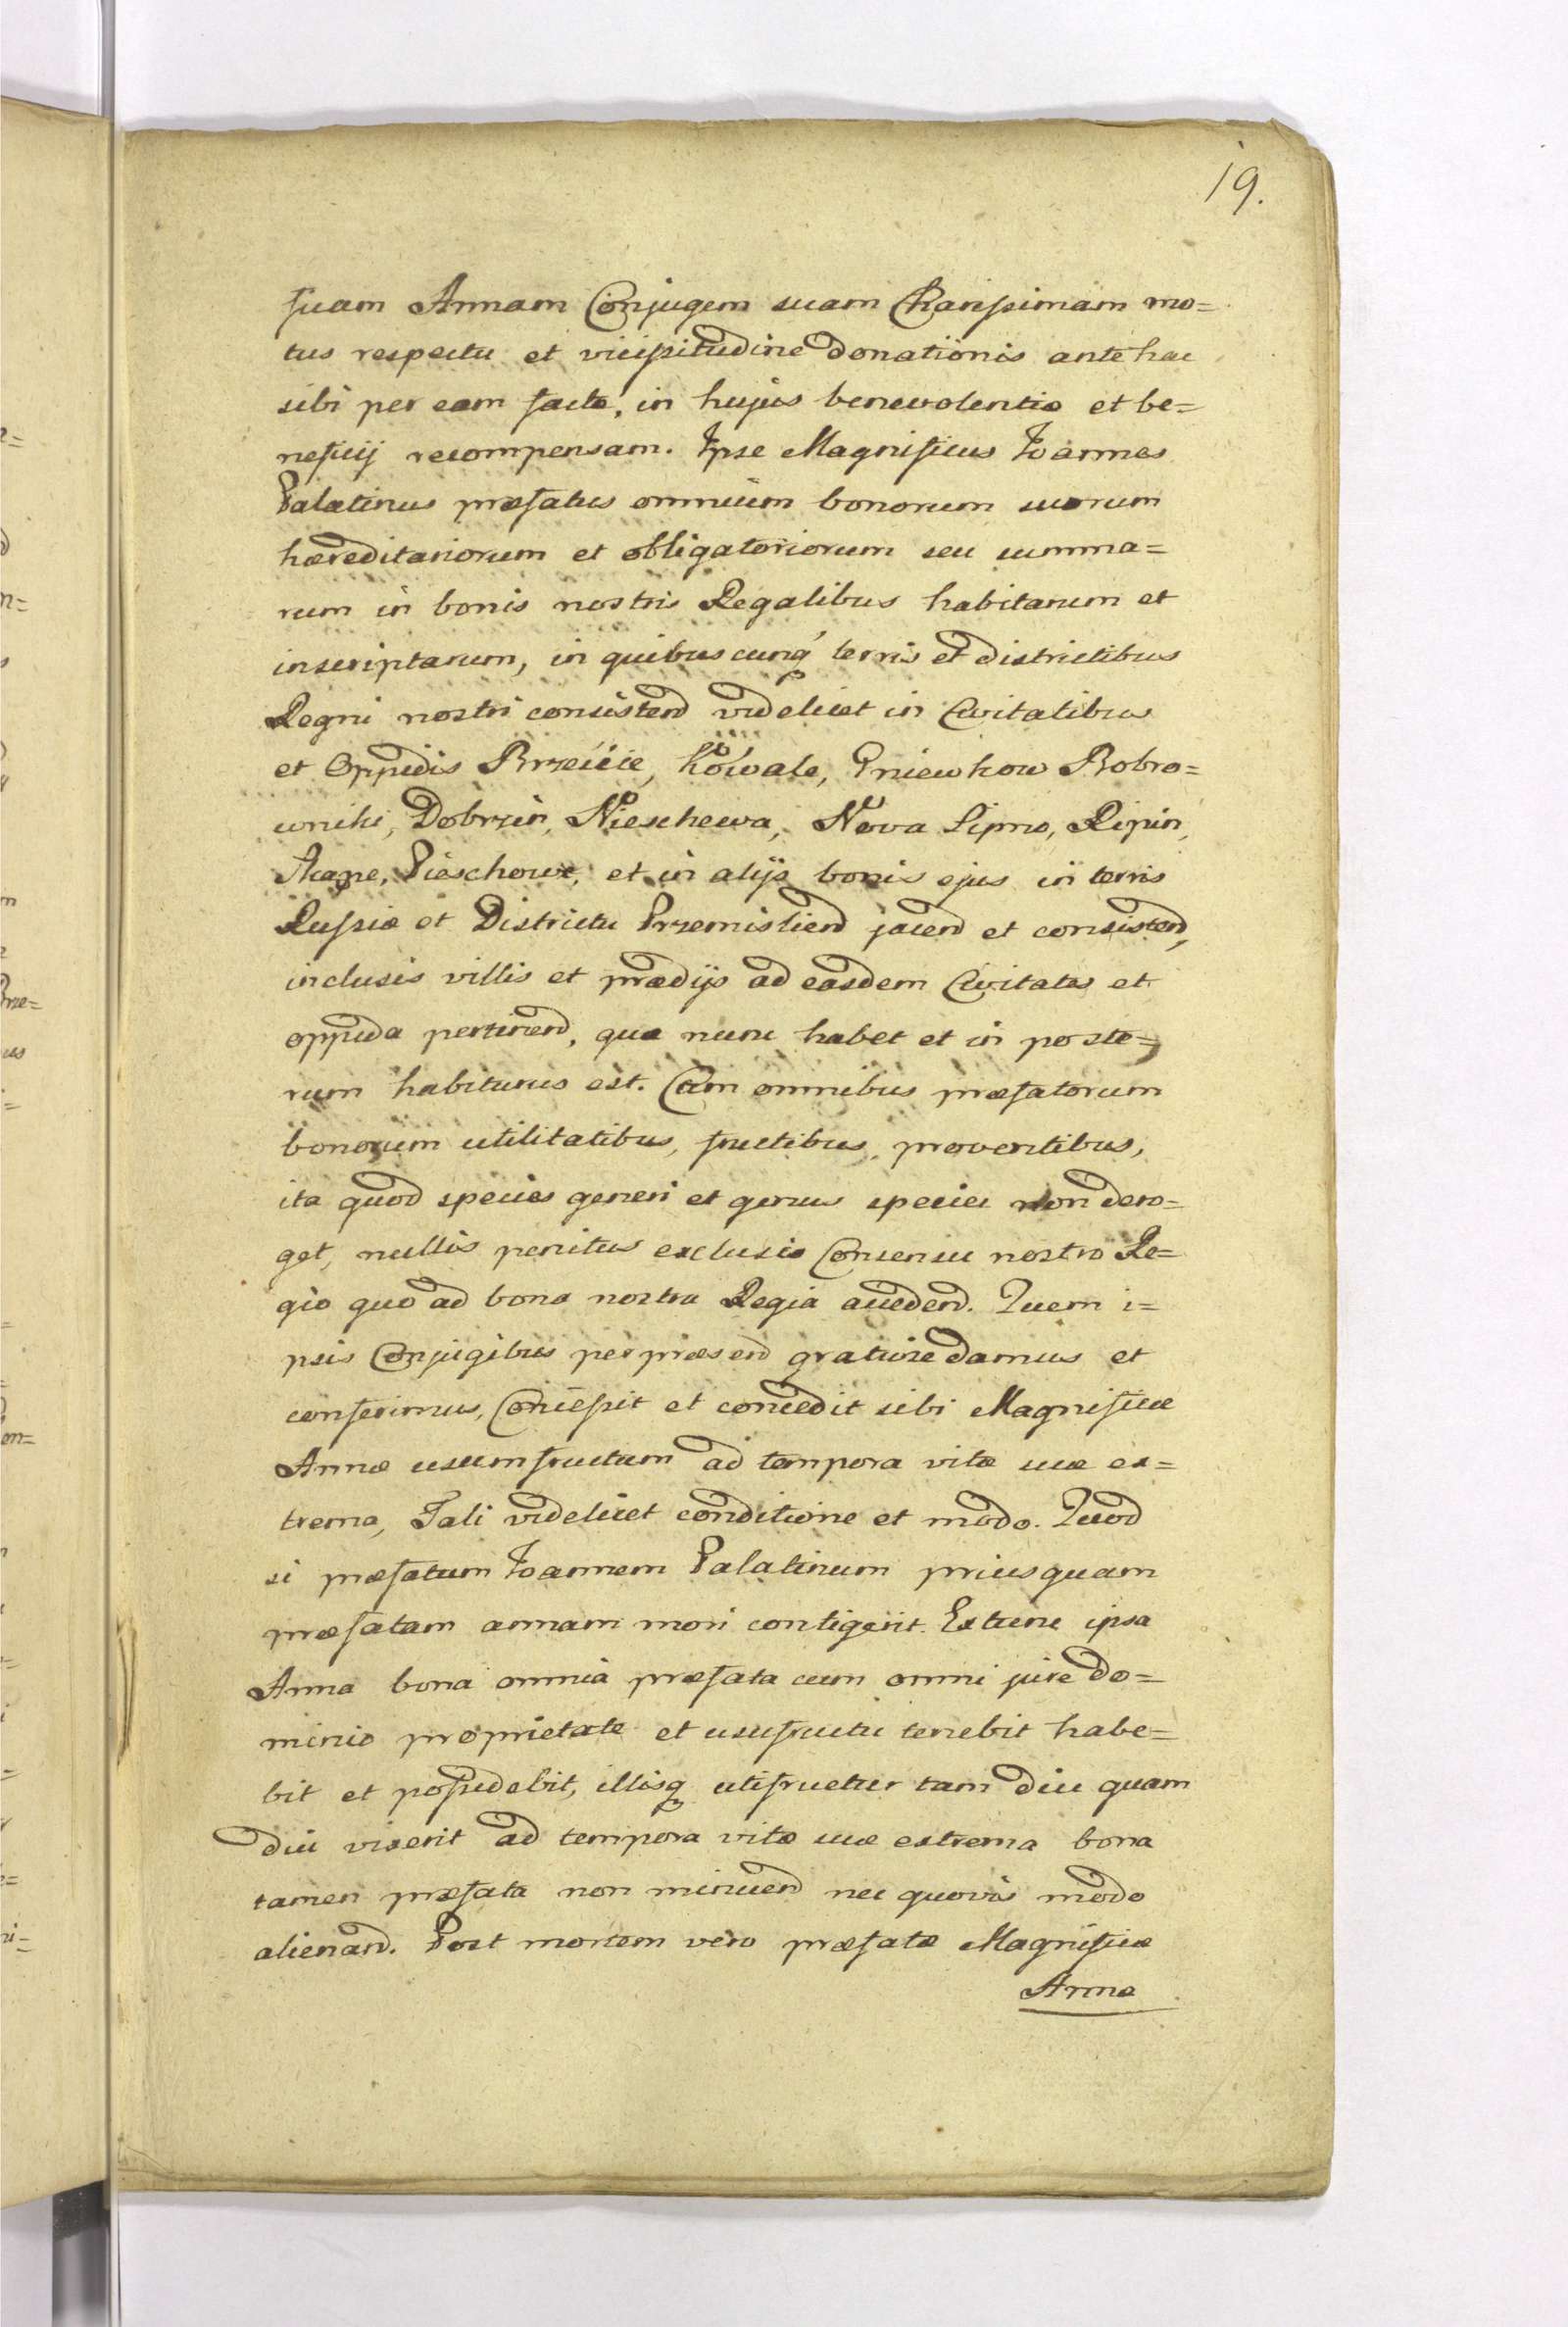 19.
suam Annam Conjugem suam Charissimam mo=
tus respectu et vicissitudine donationis ante hac
sibi per eam factæ, in hujus benevolentiæ et be=
neficij recompensam. Ipse Magnificus Joannes
Palatinus præfatus omnium bonorum suorum
hæreditariorum et obligatoriorum seu summa=
rum in bonis nostris Regalibus habitarum et
inscriptarum, in quibuscunq́ terris et districtibus
Regni nostri consistend videlicet in Civitatibus
et Oppidis Brzescie, Kowale, Gniewkow Bobro=
wniki, Dobrzin, Nieschewa, Nova Lipno, Ripin,
Pieschowe, et in alijs bonis ejus in terris
Russiæ et Districtu Przemislien jacend et consistend,
inclusis villis et prædijs ad easdem Civitates et
oppida pertinend, quæ nunc habet et in poste=
rum habiturus est. Cum omnibus præfatorum
bonorum utilitatibus, fructibus, proventibus,
ita quod species generi et genus speciei non dero=
get, nullis penitus exclusis Consensu nostro Re=
gio quo ad bona nostra Regia accedend. Quem i=
psis Conjugibus per præsend gratiose damus et
conferimus, Concessit et concedit sibi Magnificæ
Annæ usumfructum ad tempora vitæ suæ ex=
trema, Tali videlicet conditione et modo. Quod
si præfatum Joannem Palatinum priusquam
præfatam annam mori contigerit. Extunc ipsa
Anna bona omnia præfata cum omni jure do=
minio proprietate et usufructu tenebit habe=
bit et possidebit, illisq utifruetur tam diu quam
diu vixerit ad tempora vitæ suæ extrema bona
tamen præfata non minuend nec quovis modo
alienand. Post mortem vero præfatæ Magnificæ
Annæ